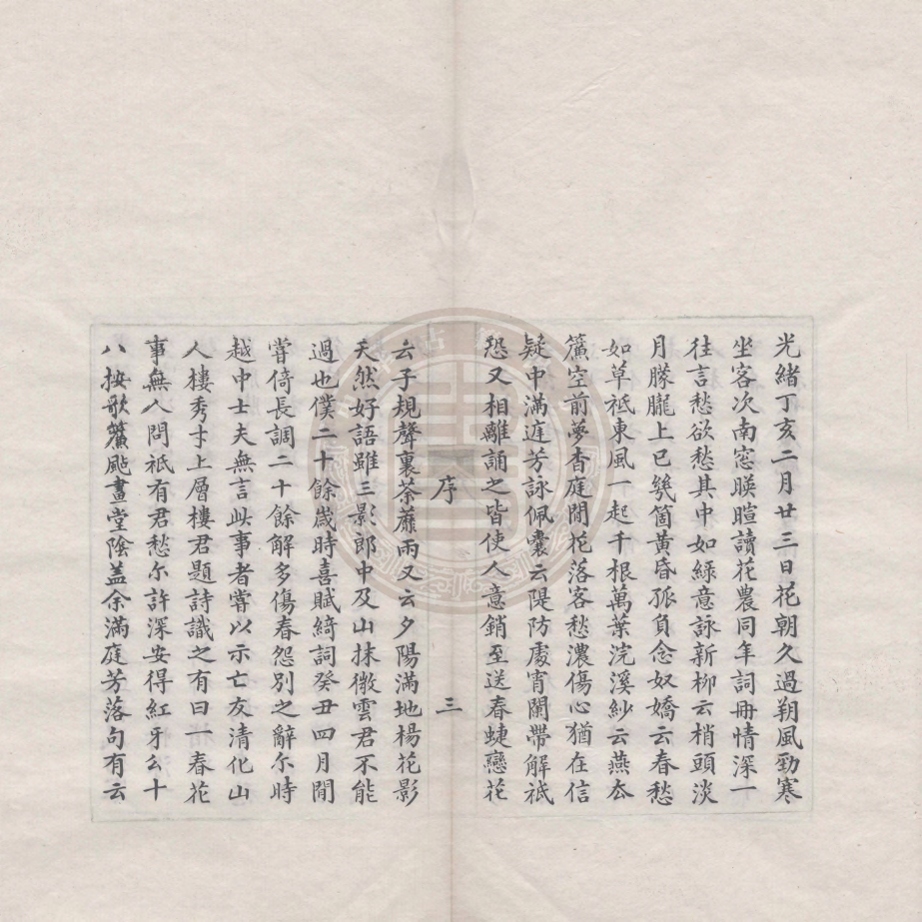 光緒丁亥二月廿三日花朝久過朔風勁寒
坐客次南窓暎暄讀花農同年詞冊情深一
往言愁欲愁其中如綠意詠新柳云梢頭淡
月朦朧上已幾箇黃昏孤負念奴嬌云春愁
如草祗東風一起千根萬葉浣溪紗云燕夳
簾空前夢杳庭閒花落客愁濃傷心猶在信
疑中滿庭芳詠佩囊云隄防處宵闌帶解祗
恐又相離誦之皆使人意銷至送春蜨戀花
序
三
云子規聲裏荼蘼雨又云夕陽滿地楊花影
天然好語雖三影郎中及山抹微雲君不能
過也僕二十餘歲時喜賦綺詞癸丑四月閒
嘗倚長調二十餘解多傷春怨別之辭尓時
越中士夫無言此事者嘗以示亡友清化山
人樓秀才上層樓君題詩識之有曰一春花
事無人問祗有君愁尓許深安得紅牙么十
八按歌簾颭畫堂陰蓋余滿庭芳落句有云